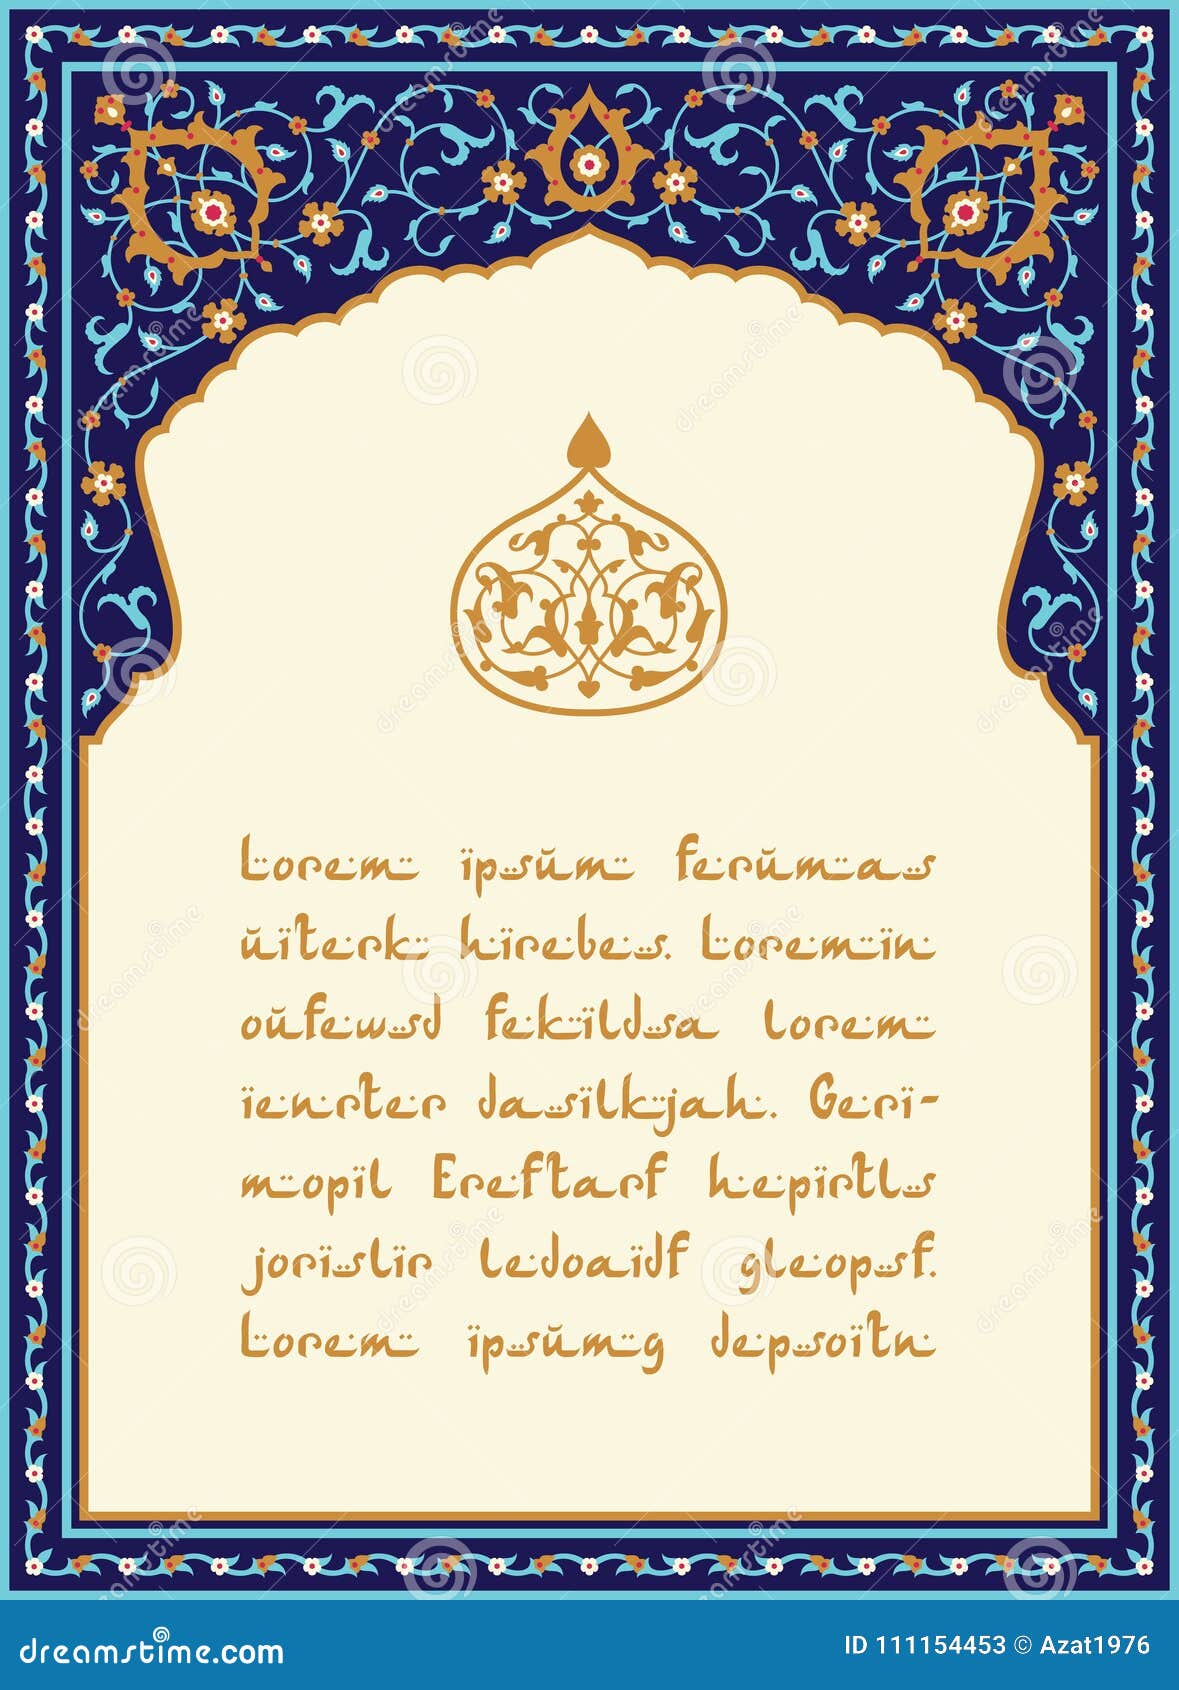 Lorem ipsŭm ferŭmas
ŭïterk hïrebes. Loremïn
oŭfewsd fekïldsa lorem
ïenrter dasïlkjah. Gerï-
mopïl Ereftarf hepïrtls
jorïslïr ledoaïdf gleopsf.
Lorem ïpsŭmg depsoïtn
dreamstime.com
ID 111154453 © Azat1976